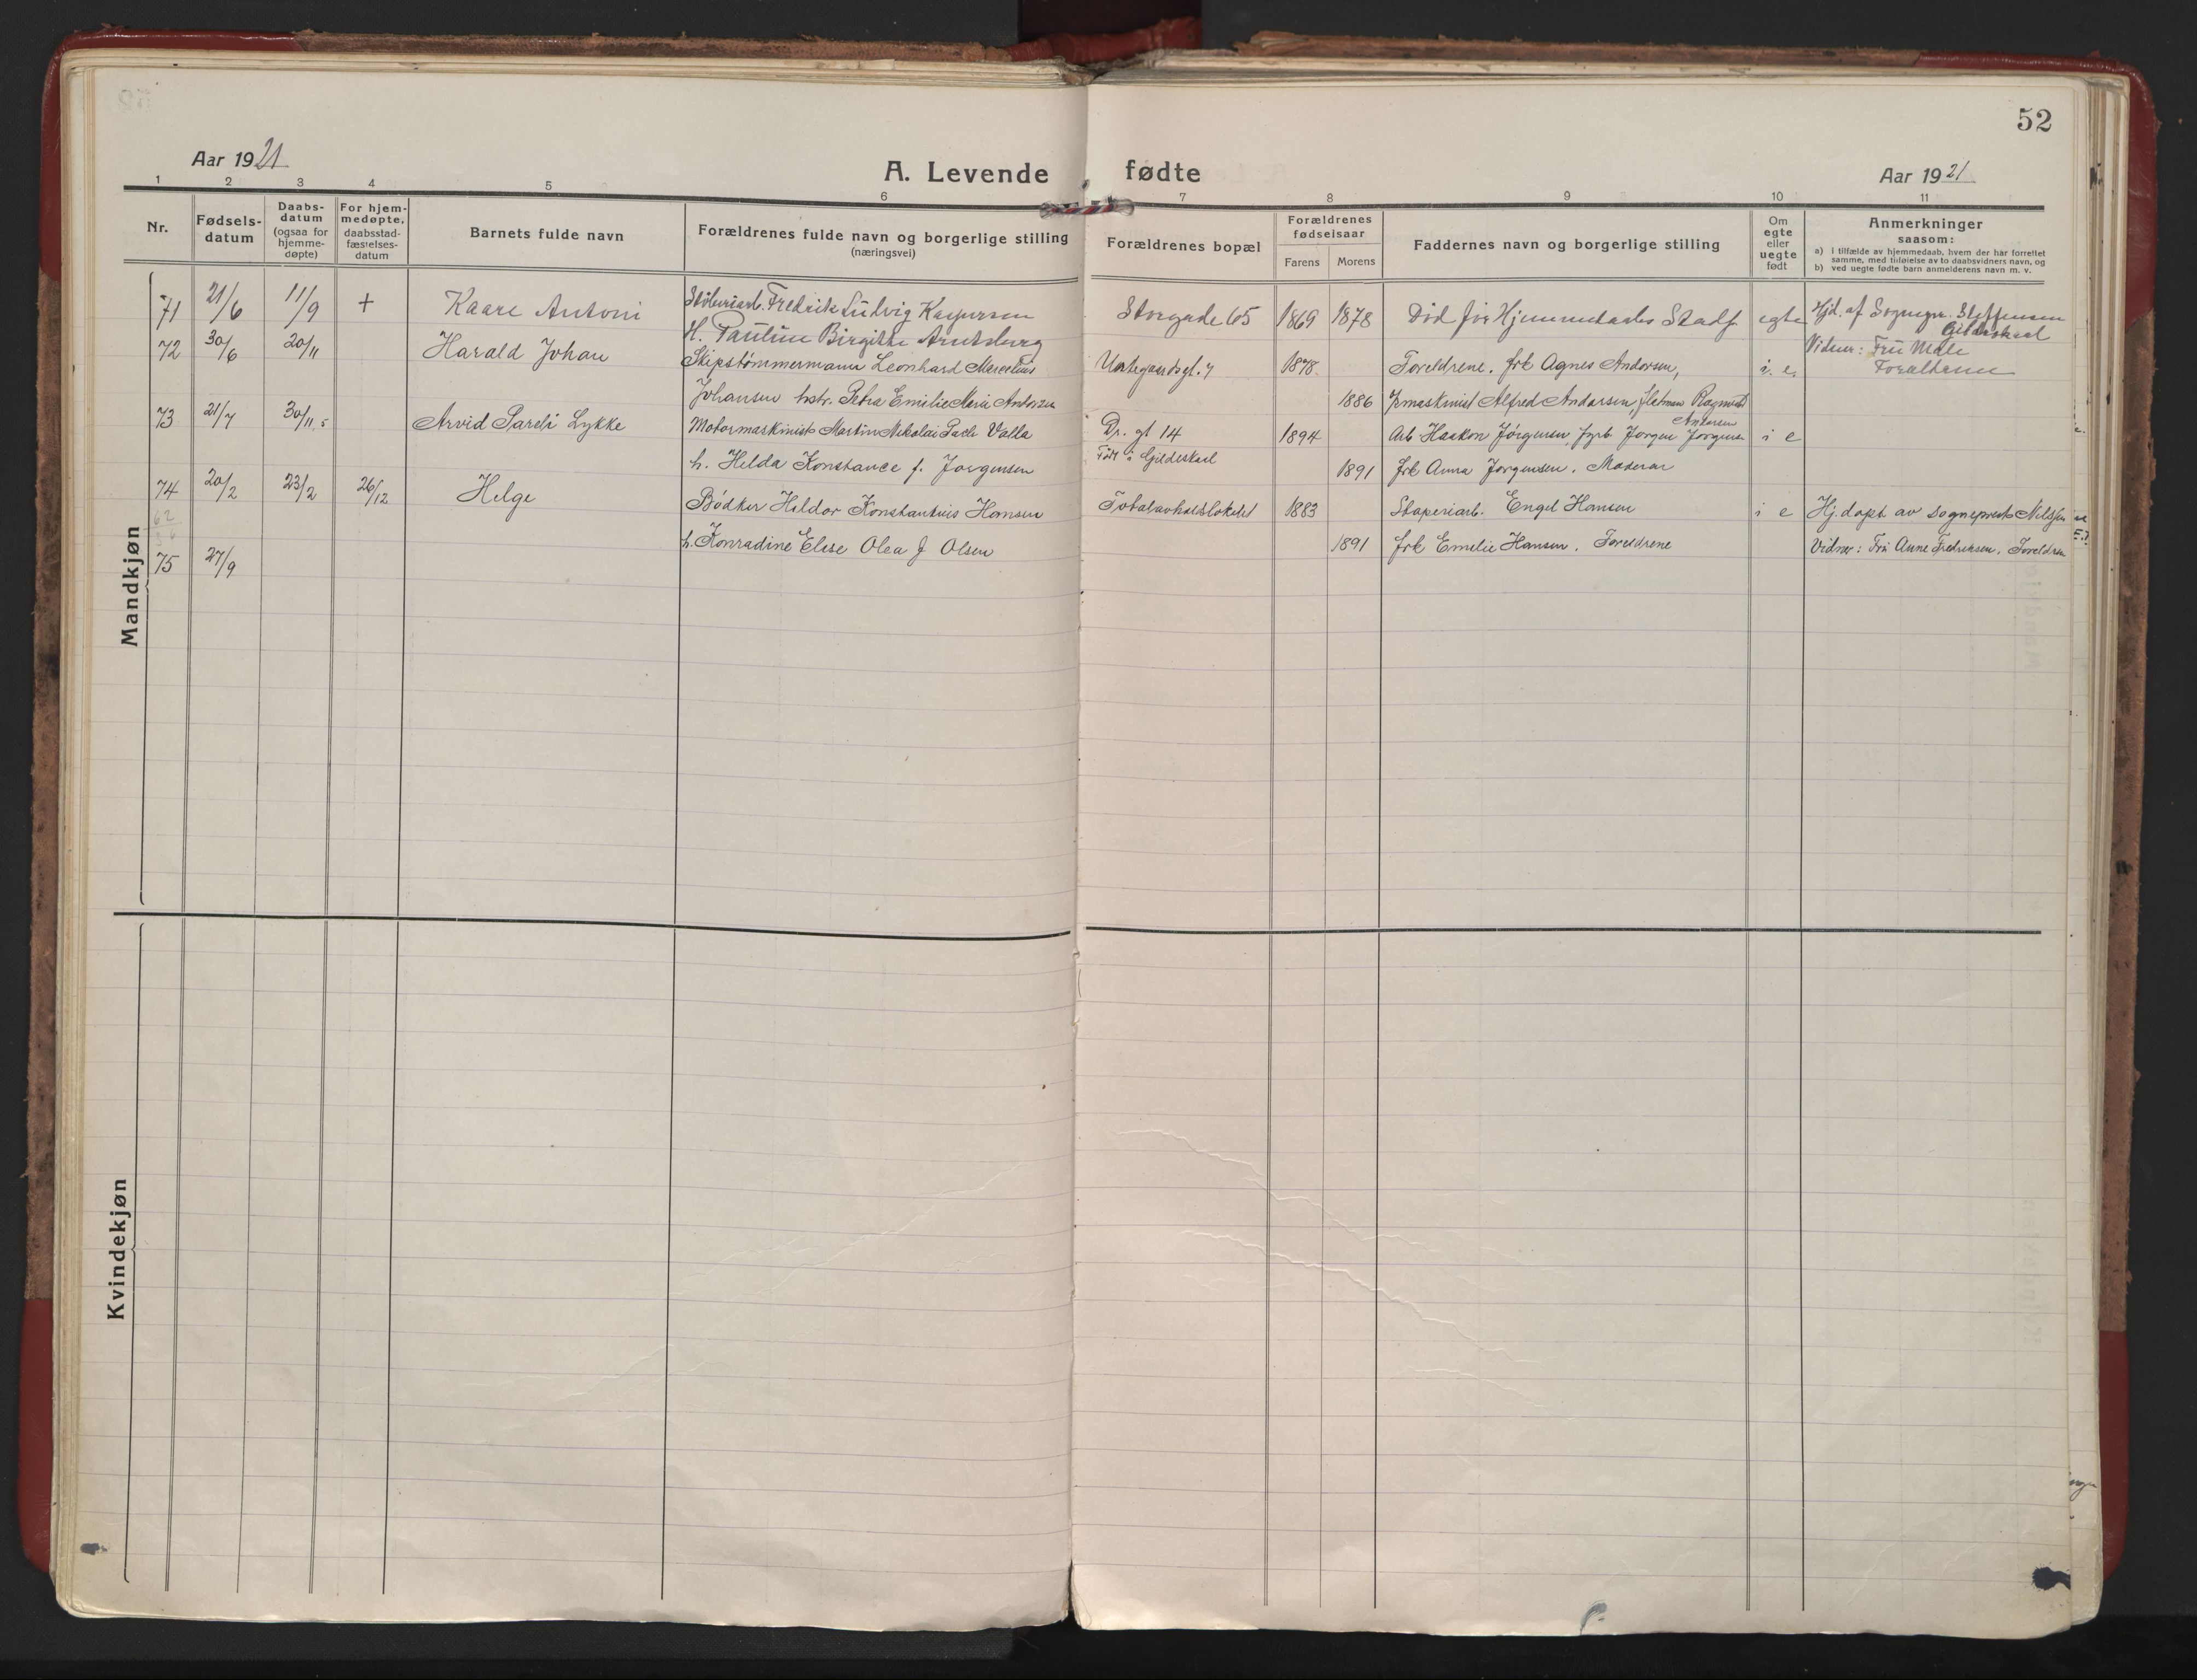 52
Aar 1921
A. Levende fødte
Aar 1921
1 2 3 4 5 6 7 8 9 10 11
Nr.
Fødsels-
datum
Daabs-
datum
(ogsaa for
hjemme-
døpte)
For hjem-
medøpte,
daabsstad-
fæstelses-
datum
Barnets fulde navn
Forældrenes fulde navn og borgerlige stilling
(næringsvei)
Forældrenes bopæl
Forældrenes
fødselsaar
Farens Morens
Faddernes navn og borgerlige stilling
Om
egte
eller
uegte
født
Anmerkninger
saasom:
a) I tilfælde av hjemmedaab, hvem der har forrettet
samme, med tilføielse av to daabsvidners navn, og
b) ved uegte fødte barn anmelderens navn m. v.
Mandkjøn
71 21/6 11/9 + Kaare Antoni Fredrik Ludvig Storgade 65 1869 1878 Død før Hjemmedaabs Stadf. egte Hjd. af Sognepr. Steffensen
Gildeskaal
H. Pauline Birgitte Arntsberg Vidner: Fru
Foraldrene
72 30/6 20/11 Harald Johan Skipstømmermann Leonhard Marcelius 1878 Foreldrene. frk Agnes Andersen, i. e.
Johansen hstr. Petra Emilie Marie Andersen 1886 Alfred Andersen, Ragnvald
Andersen
73 21/7 30/11 Arvid Lykke Motormaskinist Martin Nikolai Valla Dr. gt 14 1894 Arb Haakon Jörgensen, Jorgen Jorgensen i e
Født i Gildeskaal
h. Helda Konstance f. Jorgensen 1891 frk Anna Jorgensen. Moderen
74 20/2 23/2 26/12 Helge Bödker Hildor Konstantius Hansen Totalavholdslokalet 1883 Engel Hansen i e Hj. döpt av Sogneprest Nilssen
62
h. Konradine Elise Olea f Olsen 1891 frk Emelie Hansen. Foreldrene Vidner: Fru Anne Fredriksen. Foreldrene
75 27/9
Kvindekjøn